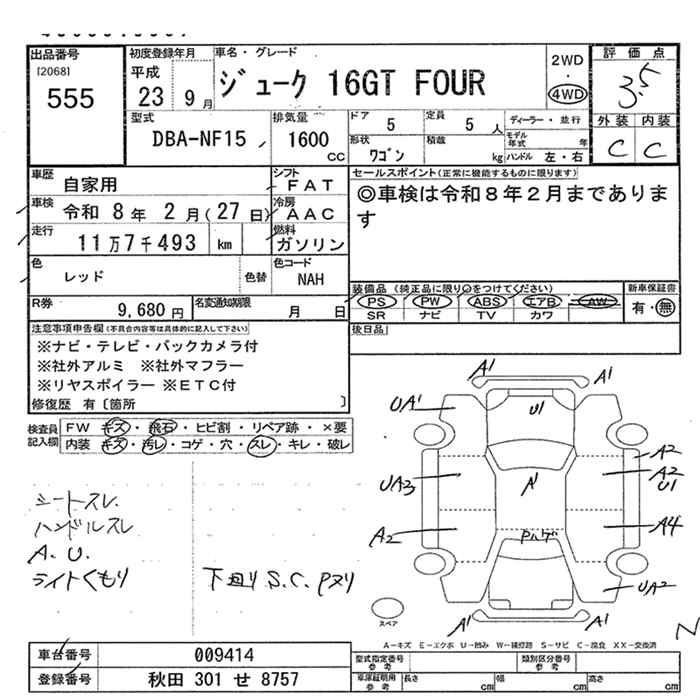 出品番号
[2068]
555
初度登録年月
平成
23 9月
車名・グレード
ジューク 16GT FOUR
2WD
・
4WD
評価点
3.5
外装 内装
C C
型式
DBA-NF15
排気量
1600
CC
ドア 5
定員 5 人
ディーラー・並行
形状
ワゴン
積載
kg
モデル年式 年
ハンドル 左・右
車歴
自家用
シフト
FAT
車検 令和 8年 2月(27日)
冷房
AAC
走行 11万7千493 km
燃料
ガソリン
色
レッド
色替
色コード
NAH
R券 9,680円
名変通知期限 月 日
セールスポイント(正常に機能するものに限ります)
◎車検は令和8年2月まであります
装備品 (純正品に限り○をつけてください)
PS PW ABS エアB AW
SR ナビ TV カワ
新車保証書
有・無
後日品
注意事項申告欄(不具合内容等は具体的に記入して下さい)
※ナビ・テレビ・バックカメラ付
※社外アルミ ※社外マフラー
※リヤスポイラー ※ETC付
修復歴 有〔箇所 〕
検査員記入欄
FW キズ・飛石・ヒビ割・リペア跡・×要
内装 キズ・汚レ・コゲ・穴・スレ・キレ・破レ
シートスレ
ハンドルスレ
A. U.
ライトくもり
下回り S.C. Pヌリ
A1 A1
UA1 U1
A2
UA3 A1 A2
U1
A2 Pハゲ A4
UA2
スペア
A1 A1
N
A-キズ E-エクボ U-凹み W-補修跡 S-サビ C-腐食 XX-交換済
車台番号 009414
登録番号 秋田 301 せ 8757
型式指定番号
参考
類別区分番号
参考
車庫証明用
参考
長さ cm 幅 cm 高さ cm